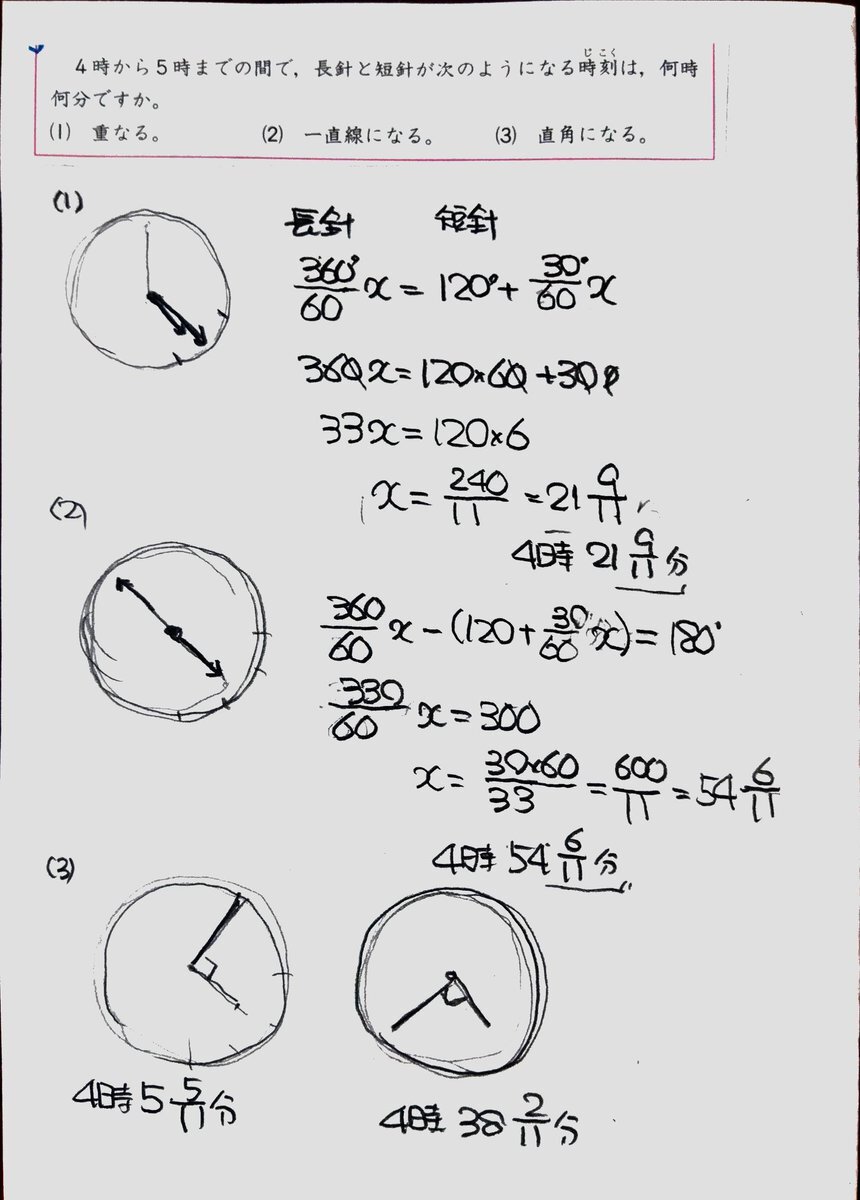 4時から5時までの間で，長針と短針が次のようになる時刻は，何時
じこく
何分ですか。
(1) 重なる。 (2) 一直線になる。 (3) 直角になる。
(1)
長針 短針
360°/60 x = 120° + 30°/60 x
360x = 120×60 + 30
33x = 120×6
x = 240/11 = 21 9/11
4時 21 9/11 分
(2)
360/60 x - (120 + 30/60 x) = 180°
330/60 x = 300
x = 30×60/33 = 600/11 = 54 6/11
4時 54 6/11 分
(3)
4時 5 5/11 分
4時 38 2/11 分